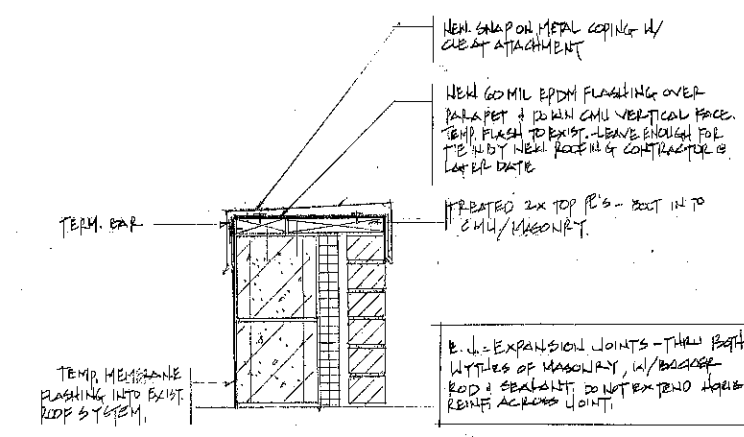 NEW SNAP ON METAL COPING W/
CLEAT ATTACHMENT
NEW 60 MIL EPDM FLASHING OVER
PARAPET & DOWN CMU VERTICAL FACE.
TEMP. FLASH TO EXIST. - LEAVE ENOUGH FOR
TIE IN BY NEW ROOFING CONTRACTOR @
LATER DATE
TREATED 2X TOP PL'S - BOLT INTO
CMU/MASONRY.
TERM. BAR
TEMP. MEMBRANE
FLASHING INTO EXIST.
ROOF SYSTEM.
E.J. = EXPANSION JOINTS - THRU BOTH
WYTHES OF MASONRY, W/ BACKER
ROD & SEALANT, DO NOT EXTEND HORIZ
REINF. ACROSS JOINT.